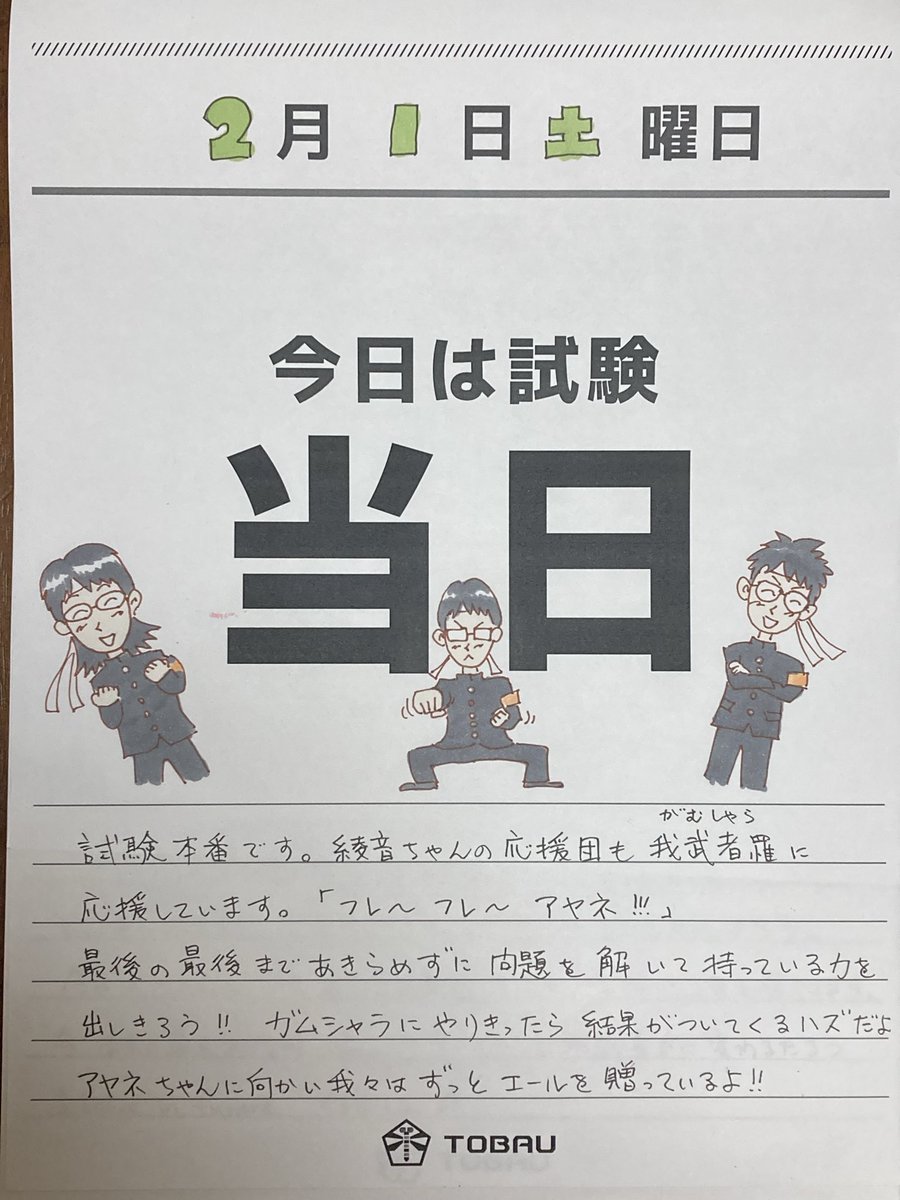 2月1日土曜日
今日は試験
当日
がむしゃら
試験本番です。綾音ちゃんの応援団も我武者羅に
応援しています。「フレ〜フレ〜アヤネ!!!」
最後の最後まであきらめずに問題を解いて持っている力を
出しきろう!! ガムシャラにやりきったら結果がついてくるハズだよ
アヤネちゃんに向かい我々はずっとエールを贈っているよ!!
TOBAU